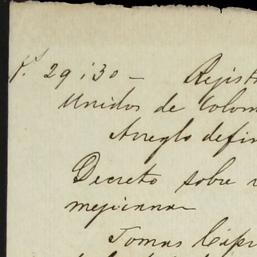 P. 29 i 30 — Rejistr
Unidos de Colom
Arreglo defin
Decreto sobre
mejicana
Tomas Cipr